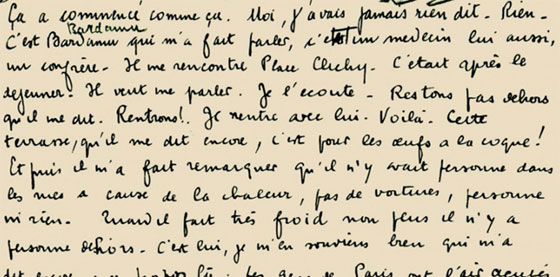 Ça a commencé comme ça. Moi, j'avais jamais rien dit - Rien -
Bardamu
C'est Bardamu qui m'a fait parler, c'est un medecin lui aussi,
un confrère - Il me rencontre Place Clichy - C'était après le
dejeuner - Il veut me parler. Je l'ecoute - Restons pas dehors
qu'il me dit. Rentrons! Je rentre avec lui. Voilà. Cette
terrasse, qu'il me dit encore, c'est pour les œufs à la coque!
Et puis il m'a fait remarquer qu'il n'y avait personne dans
les rues a cause de la chaleur, pas de voitures, personne
ni rien - Quand il fait très froid non plus il n'y a
personne dehors - C'est lui, je m'en souviens bien qui m'a
dit encore les gens de Paris ont l'air